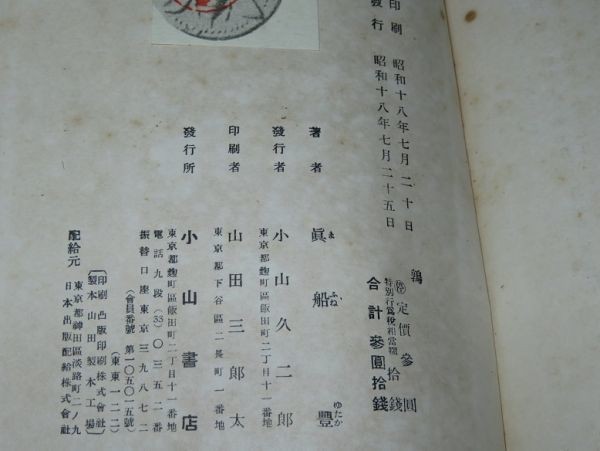 鶉
㊞定價參圓
特別行爲稅相當額拾錢
合計參圓拾錢
印刷 昭和十八年七月二十日
發行 昭和十八年七月二十五日
著者 眞船豐
まふね ゆたか
東京都麴町區飯田町二丁目十一番地
發行者 小山久二郎
東京都下谷區二長町一番地
印刷者 山田三郎太
東京都麴町區飯田町二丁目十一番地
發行所 小山書店
電話九段(33)〇三五二番
振替口座東京三九八七二
(會員番號 第一〇五〇一五號)
(東東一二二)
印刷 凸版印刷株式會社
製本 山田製本工場
東京都神田區淡路町二ノ九
配給元 日本出版配給株式會社